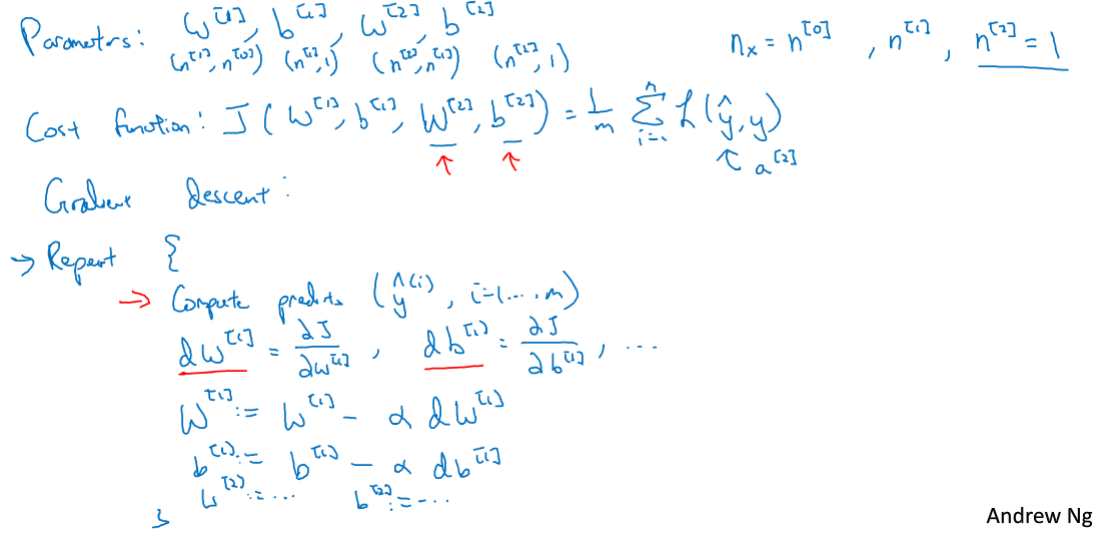 Parameters: W^[1], b^[1], W^[2], b^[2]    n_x = n^[0], n^[1], n^[2] = 1
(n^[1], n^[0]) (n^[1], 1) (n^[2], n^[1]) (n^[2], 1)
Cost function: J(W^[1], b^[1], W^[2], b^[2]) = 1/m ∑_{i=1}^{n} L(ŷ, y)
↑ ↑ ↖ a^[2]
Gradient descent:
→ Repeat {
→ Compute predicts (ŷ^(i), i=1...,m)
dW^[1] = ∂J/∂W^[1], db^[1] = ∂J/∂b^[1], ...
W^[1] := W^[1] - α dW^[1]
b^[1] := b^[1] - α db^[1]
W^[2] := ... b^[2] := ...
}
Andrew Ng